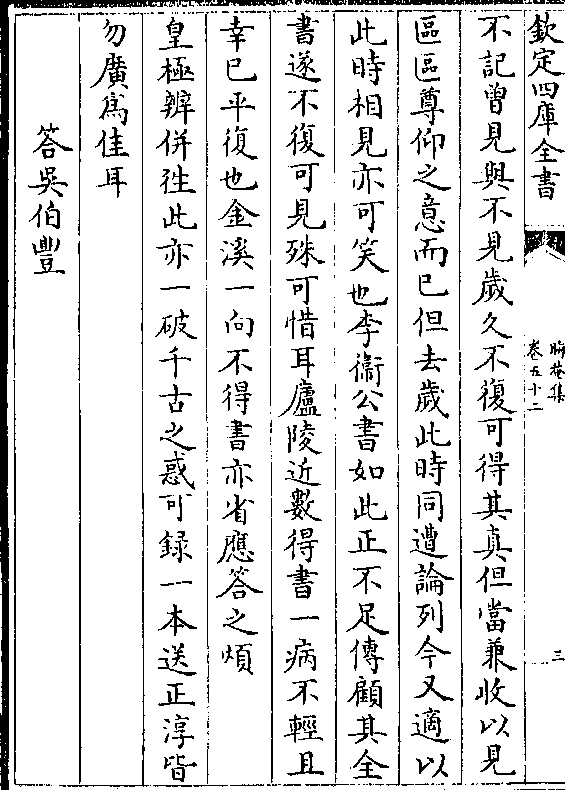 欽定四庫全書
晦菴集
卷五十二
三
不記曾見與不見歲久不復可得其真但當兼收以見
區區尊仰之意而已但去歲此時同遭論列今又適以
此時相見亦可笑也李衞公書如此正不足傳顧其全
書遂不復可見殊可惜耳廬陵近數得書一病不輕且
幸已平復也金溪一向不得書亦省應答之煩
皇極辨併往此亦一破千古之惑可録一本送正淳皆
勿廣爲佳耳
答吳伯豐